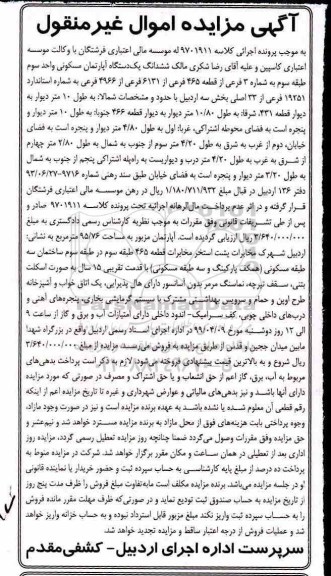 آگهی مزایده اموال غیرمنقول
به موجب پرونده اجرائی کلاسه ۹۷۰۱۹۱۱ له موسسه مالی اعتباری فرشتگان با وکالت موسسه
اعتباری کاسپین و علیه آقای رضا شکری مالک ششدانگ یک‌دستگاه آپارتمان مسکونی واحد سوم
طبقه سوم به شماره ۳ فرعی از قطعه ۴۶۵ فرعی از ۶۱۳۱ فرعی از ۴۹۶۶ فرعی به شماره استاندارد
۱۹۲۵۱ فرعی از ۳۳ اصلی بخش سه اردبیل با حدود و مشخصات شمالا: به طول ۱۰ متر دیوار به
دیوار قطعه ۴۳۱، شرقا: به طول ۱۰/۸۰ متر دیوار به دیوار قطعه ۴۶۶ جنوبا: به طول ۱۰ متر دیوار و
پنجره است به فضای محوطه اشتراکی، غربا: اول به طول ۴/۸۰ متر دیوار و پنجره است به فضای
خیابان، دوم از غرب به شرق به طول ۴/۲۰ متر سوم از جنوب به شمال به طول ۲/۸۰ متر چهارم
از شرق به غرب به طول ۴/۲۰ متر درب و دیواریست به راه‌پله اشتراکی پنجم از جنوب به شمال
به طول ۳/۲۰ متر دیوار و پنجره است به فضای خیابان طبق سند رهنی شماره ۹۷۱۶-۹۳/۰۶/۲۷
دفتر ۱۳۶ اردبیل در قبال مبلغ ۱/۱۸۰/۷۱۱/۹۳۲ ریال در رهن موسسه مالی اعتباری فرشتگان
قرار گرفته و در اثر عدم پرداخت مال‌الرهانه اجرائیه تحت پرونده کلاسه ۹۷۰۱۹۱۱ صادر و
پس از طی تشریفات قانونی وفق مقررات به موجب نظریه کارشناس رسمی دادگستری به مبلغ
۳/۶۴۰/۰۰۰/۰۰۰ ریال ارزیابی گردیده است. آپارتمان مزبور به مساحت ۹۵/۷۶ مترمربع به نشانی:
اردبیل شهرک مخابرات پشت استخر مخابرات قطعه ۴۶۵ طبقه سوم در طبقه سوم ساختمان سه
طبقه مسکونی (همکف پارکینگ و سه طبقه مسکونی) با قدمت تقریبی ۱۵ سال به صورت اسکلت
بتنی، سقف تیرچه، نماسنگ مرمر بدون آسانسور دارای هال پذیرایی، یک اتاق خواب و آشپزخانه
طرح اوپن و حمام و سرویس بهداشتی مشترک با سیستم گرمایشی بخاری، پنجره‌های آهنی و
درب‌های داخلی چوبی، کف سرامیک- اندود داخلی دارای امتیازات آب و برق و گاز از ساعت ۹
الی ۱۲ روز دوشنبه مورخ ۹۹/۰۴/۰۹ در اداره اجرای اسناد رسمی اردبیل واقع در بزرگراه شهدا
مابین میدان ججین و قدس از طریق مزایده به فروش می‌رسد. مزایده از مبلغ ۳/۶۴۰/۰۰۰/۰۰۰
ریال شروع و به بالاترین قیمت پیشنهادی فروخته می‌شود. لازم به ذکر است پرداخت بدهی‌های
مربوط به آب، برق، گاز اعم از حق انشعاب و یا حق اشتراک و مصرف در صورتی که مورد مزایده
دارای آنها باشد و نیز بدهی‌های مالیاتی و عوارض شهرداری و غیره تا تاریخ مزایده اعم از اینکه
رقم قطعی آن معلوم شده یا نشده باشد به عهده برنده مزایده است و نیز در صورت وجود مازاد،
وجوه پرداختی بابت هزینه‌های فوق از محل مازاد به برنده مزایده مسترد خواهد شد و نیم‌عشر و
حق مزایده وفق مقررات وصول می‌گردد ضمنا چنانچه روز مزایده تعطیل رسمی گردد، مزایده روز
اداری بعد از تعطیلی در همان ساعت و مکان مقرر برگزار خواهد شد. شرکت در مزایده منوط به
پرداخت ده درصد از مبلغ پایه کارشناسی به حساب سپرده ثبت و حضور خریدار یا نماینده قانونی
او در جلسه مزایده می‌باشد. برنده مزایده مکلف است مابه‌تفاوت مبلغ فروش را ظرف مدت پنج روز
از تاریخ مزایده به حساب صندوق ثبت تودیع نماید و در صورتی‌که ظرف مهلت مقرر مانده فروش
را به حساب سپرده ثبت واریز نکند مبلغ مزبور قابل استرداد نبوده و به حساب خزانه واریز خواهد
شد و عملیات فروش از درجه اعتبار ساقط و مزایده تجدید خواهد شد.
سرپرست اداره اجرای اردبیل- کشفی‌مقدم